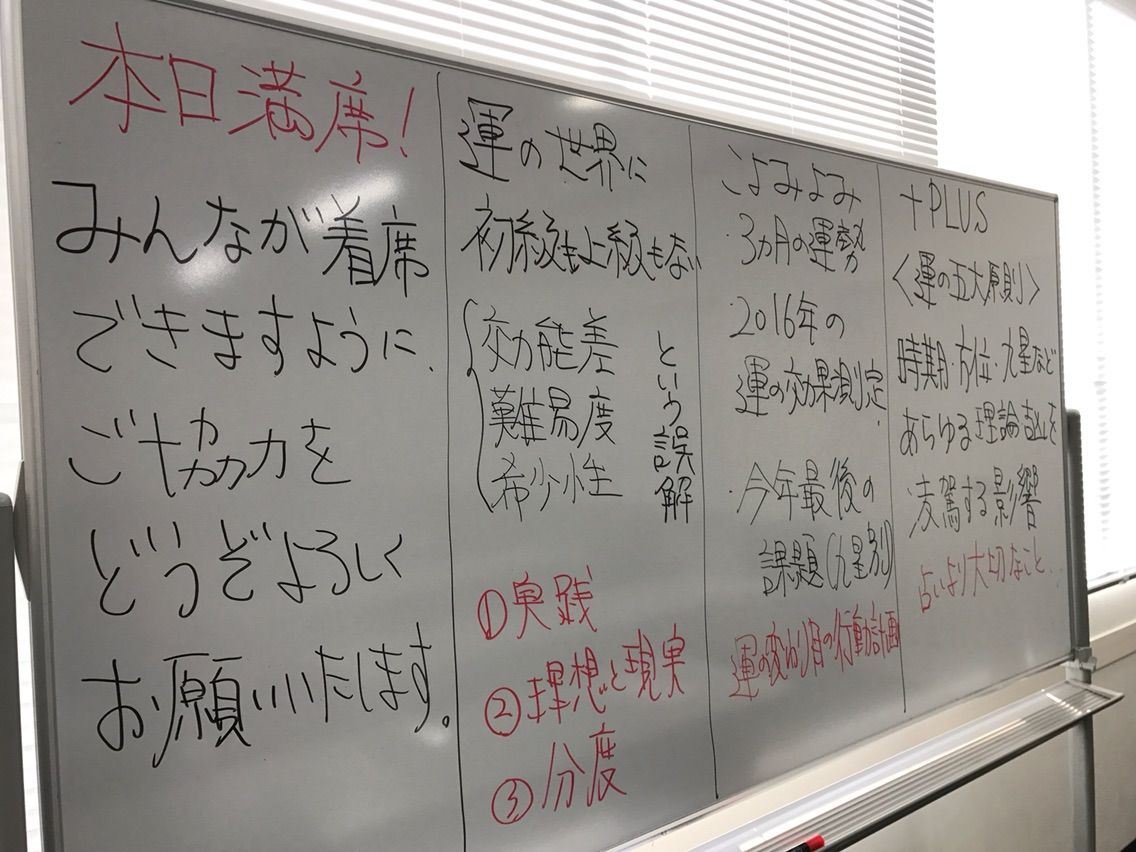 本日満席!
みんなが着席
できますように、
ご協力を
どうぞよろしく
お願いいたします。
運の世界に
初級も上級もない
効能差
難易度
希少性
という誤解
①実践
②理想と現実
③分度
こよみよみ
・3ヵ月の運勢
・2016年の
運の効果測定
・今年最後の
課題(九星別)
運の変わり目の行動計画
+PLUS
<運の五大原則>
時期・方位・九星など
あらゆる理論を
凌駕する影響
占いより大切なこと